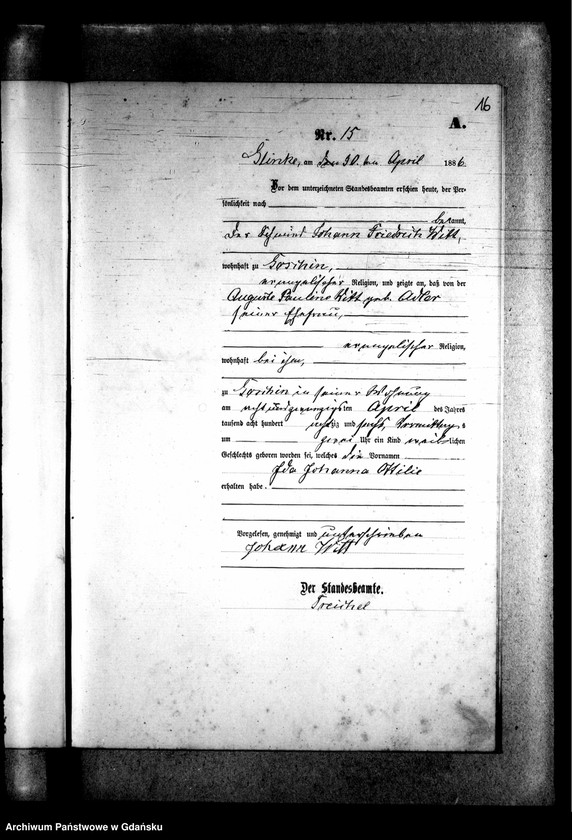 16
A.
Nr. 15
Glinke, am 30. ten April 1886
Vor dem unterzeichneten Standesbeamten erschien heute, der Per-
sönlichkeit nach
bekannt,
der Schmied Johann Friedrich Witt,
wohnhaft zu Goschin,
evangelischer Religion, und zeigte an, daß von der
Auguste Pauline Witt geb. Adler
seiner Ehefrau,
evangelischer Religion,
wohnhaft bei ihm,
zu Goschin in seiner Wohnung
am acht und zwanzigsten April des Jahres
tausend acht hundert achtzig und sechs, Vormittags
um zwei Uhr ein Kind weiblichen
Geschlechts geboren worden sei, welches die Vornamen
Ida Johanna Ottilie
erhalten habe.
Vorgelesen, genehmigt und unterschrieben
Johann Witt
Der Standesbeamte.
Treichel
Archiwum Państwowe w Gdańsku